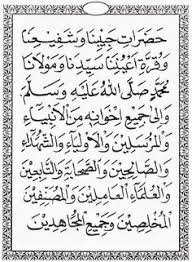 حَضَرَاتِ حَبِيْبِنَا وَشَفِيْعِنَا
وَقُرَّةِ أَعْيُنِنَا سَيِّدِنَا وَمَوْلَانَا
مُحَمَّدٍ صَلَّى اللهُ عَلَيْهِ وَسَلَّمَ
وَاِلَى جَمِيْعِ اِخْوَانِهِ مِنَ الْاَنْبِيَآءِ
وَالْمُرْسَلِيْنَ وَالْاَوْلِيَآءِ وَالشُّهَدَآءِ
وَالصَّالِحِيْنَ وَالصَّحَابَةِ وَالتَّابِعِيْنَ
وَالْعُلَمَآءِ الْعَامِلِيْنَ وَالْمُصَنِّفِيْنَ
الْمُخْلِصِيْنَ وَجَمِيْعِ الْمُجَاهِدِيْنَ